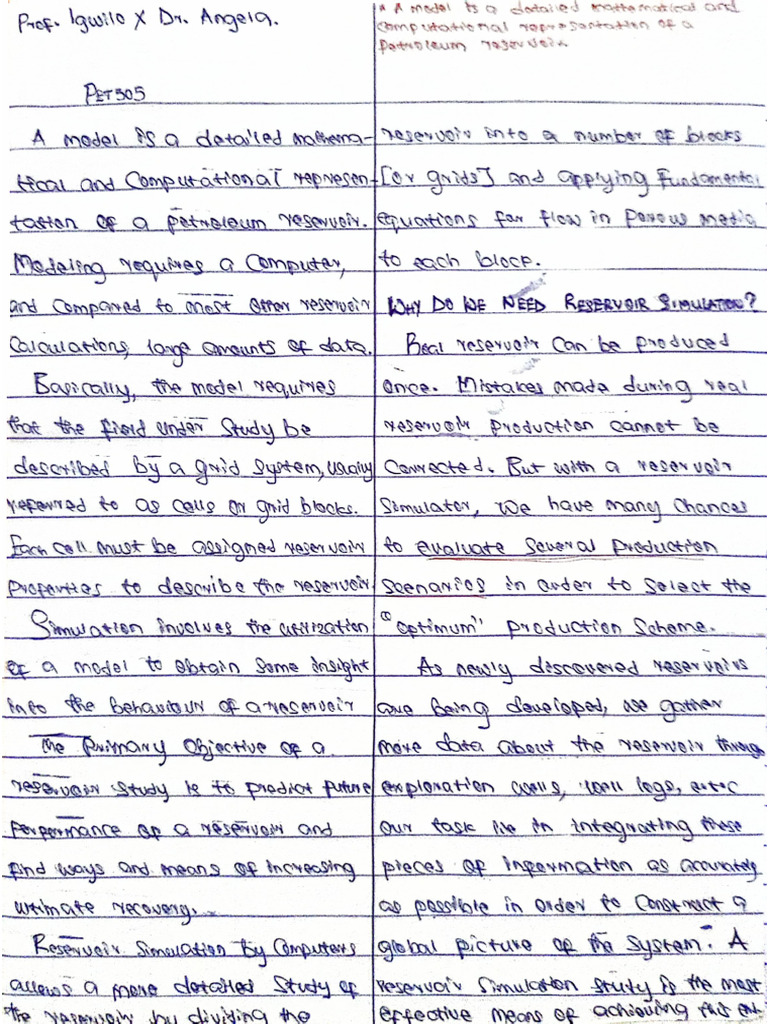 Prof. Igwilo X Dr. Angela.
PET505
A model is a detailed mathema-
tical and Computational represen-
tation of a petroleum reservoir.
Modeling requires a Computer,
and compared to most other reservoir
Calculations, large amounts of data.
Basically, the model requires
that the field under study be
described by a grid system, usually
referred to as cells or grid blocks.
Each cell must be assigned reservoir
properties to describe the reservoir.
Simulation involves the utilization
of a model to obtain some insight
into the behaviour of a reservoir
The primary objective of a
reservoir study is to predict future
performance of a reservoir and
find ways and means of increasing
ultimate recovery.
Reservoir Simulation by Computers
allows a more detailed study of
the reservoir by dividing the
* A model is a detailed mathematical and
computational representation of a
petroleum reservoir.
reservoir into a number of blocks
[or grids] and applying fundamental
equations for flow in porous media
to each block.
WHY DO WE NEED RESERVOIR SIMULATION?
Real reservoir can be produced
once. Mistakes made during real
reservoir production cannot be
corrected. But with a reservoir
Simulator, we have many chances
to evaluate several production
scenarios in order to select the
"optimum" production scheme.
As newly discovered reservoirs
are being developed, we gather
more data about the reservoir through
exploration wells, well logs, etc
our task lie in integrating these
pieces of information as accurately
as possible in order to construct a
global picture of the system. A
reservoir simulation study is the most
effective means of achieving this